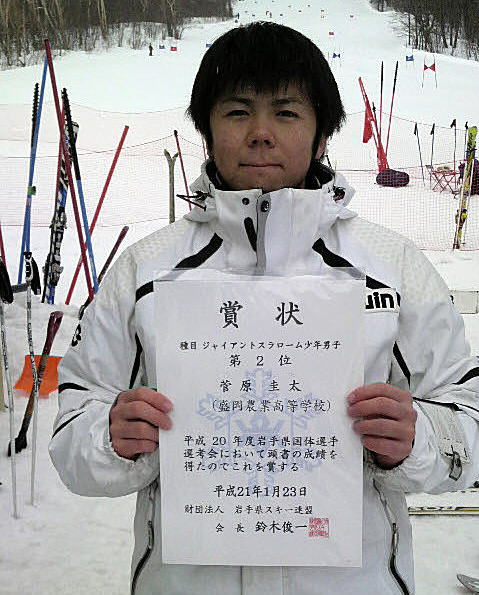 賞状
種目 ジャイアントスラローム少年男子
第 2 位
菅原 圭太
(盛岡農業高等学校)
平成 20 年度岩手県国体選手
選考会において頭書の成績を
得たのでこれを賞する
平成21年1月23日
財団法人 岩手県スキー連盟
会 長 鈴木俊一